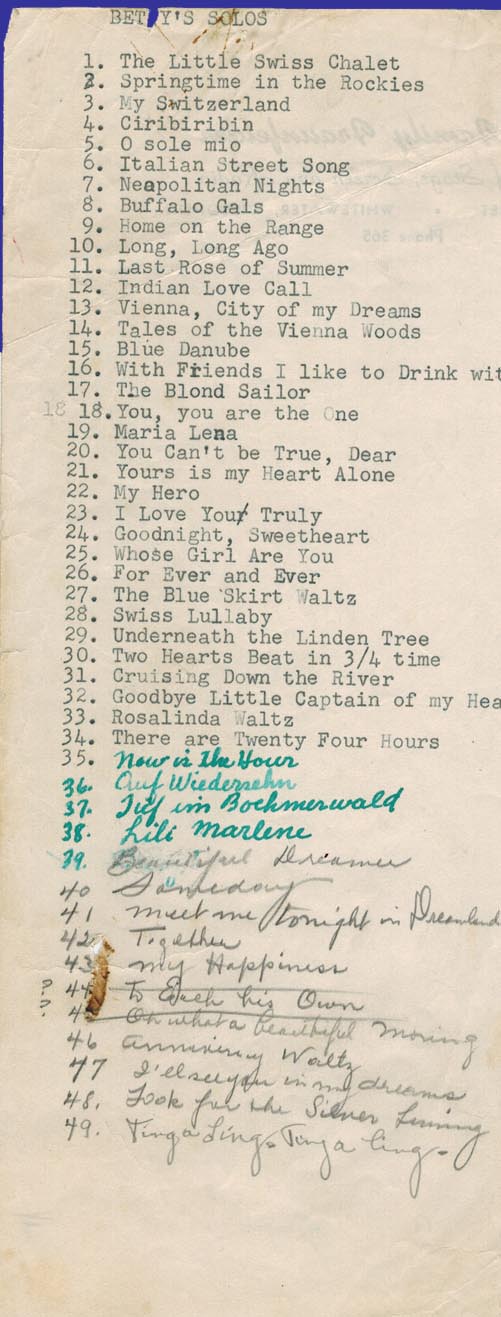 BETTY'S SOLOS
1. The Little Swiss Chalet
2. Springtime in the Rockies
3. My Switzerland
4. Ciribiribin
5. O sole mio
6. Italian Street Song
7. Neapolitan Nights
8. Buffalo Gals
9. Home on the Range
10. Long, Long Ago
11. Last Rose of Summer
12. Indian Love Call
13. Vienna, City of my Dreams
14. Tales of the Vienna Woods
15. Blue Danube
16. With Friends I like to Drink wit
17. The Blond Sailor
18 18. You, you are the One
19. Maria Lena
20. You Can't be True, Dear
21. Yours is my Heart Alone
22. My Hero
23. I Love Your Truly
24. Goodnight, Sweetheart
25. Whose Girl Are You
26. For Ever and Ever
27. The Blue Skirt Waltz
28. Swiss Lullaby
29. Underneath the Linden Tree
30. Two Hearts Beat in 3/4 time
31. Cruising Down the River
32. Goodbye Little Captain of my Hea
33. Rosalinda Waltz
34. There are Twenty Four Hours
35. Now is The Hour
36. Auf Wiedersehn
37. Tief im Boehmerwald
38. Lili Marlene
39. Beautiful Dreamer
40 Someday
41 Meet me tonight in Dreamland
42 Together
43 My Happiness
?? 44 To Each his Own
45 Oh what a beautiful Morning
46 Anniversy Waltz
47 I'll see you in my dreams
48. Look for the Silver Lining
49. Ting a Ling - Ting a ling -